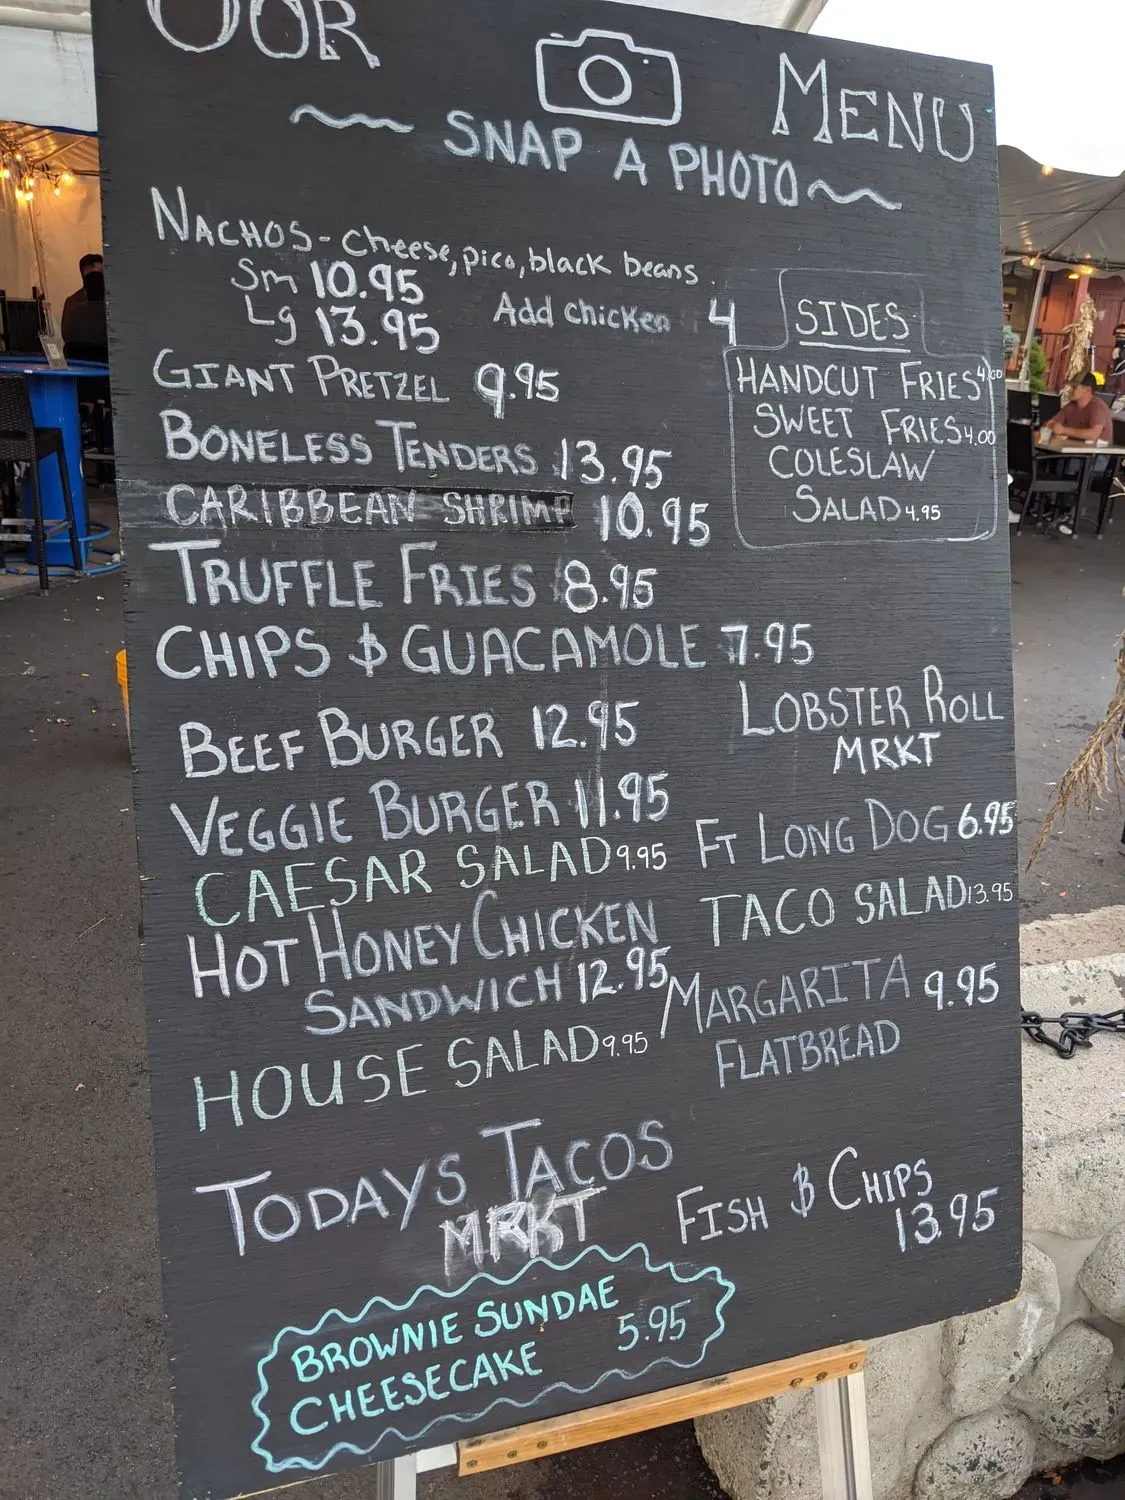 OUR MENU
~ SNAP A PHOTO ~
NACHOS - cheese, pico, black beans
Sm 10.95
Lg 13.95
Add chicken 4
GIANT PRETZEL 9.95
BONELESS TENDERS 13.95
CARIBBEAN SHRIMP 10.95
TRUFFLE FRIES 8.95
CHIPS & GUACAMOLE 7.95
SIDES
HANDCUT FRIES 4.00
SWEET FRIES 4.00
COLESLAW
SALAD 4.95
BEEF BURGER 12.95
VEGGIE BURGER 11.95
CAESAR SALAD 9.95
HOT HONEY CHICKEN
SANDWICH 12.95
HOUSE SALAD 9.95
LOBSTER ROLL
MRKT
FT LONG DOG 6.95
TACO SALAD 13.95
MARGARITA 9.95
FLATBREAD
TODAYS TACOS
MRKT
FISH & CHIPS
13.95
BROWNIE SUNDAE
CHEESECAKE 5.95